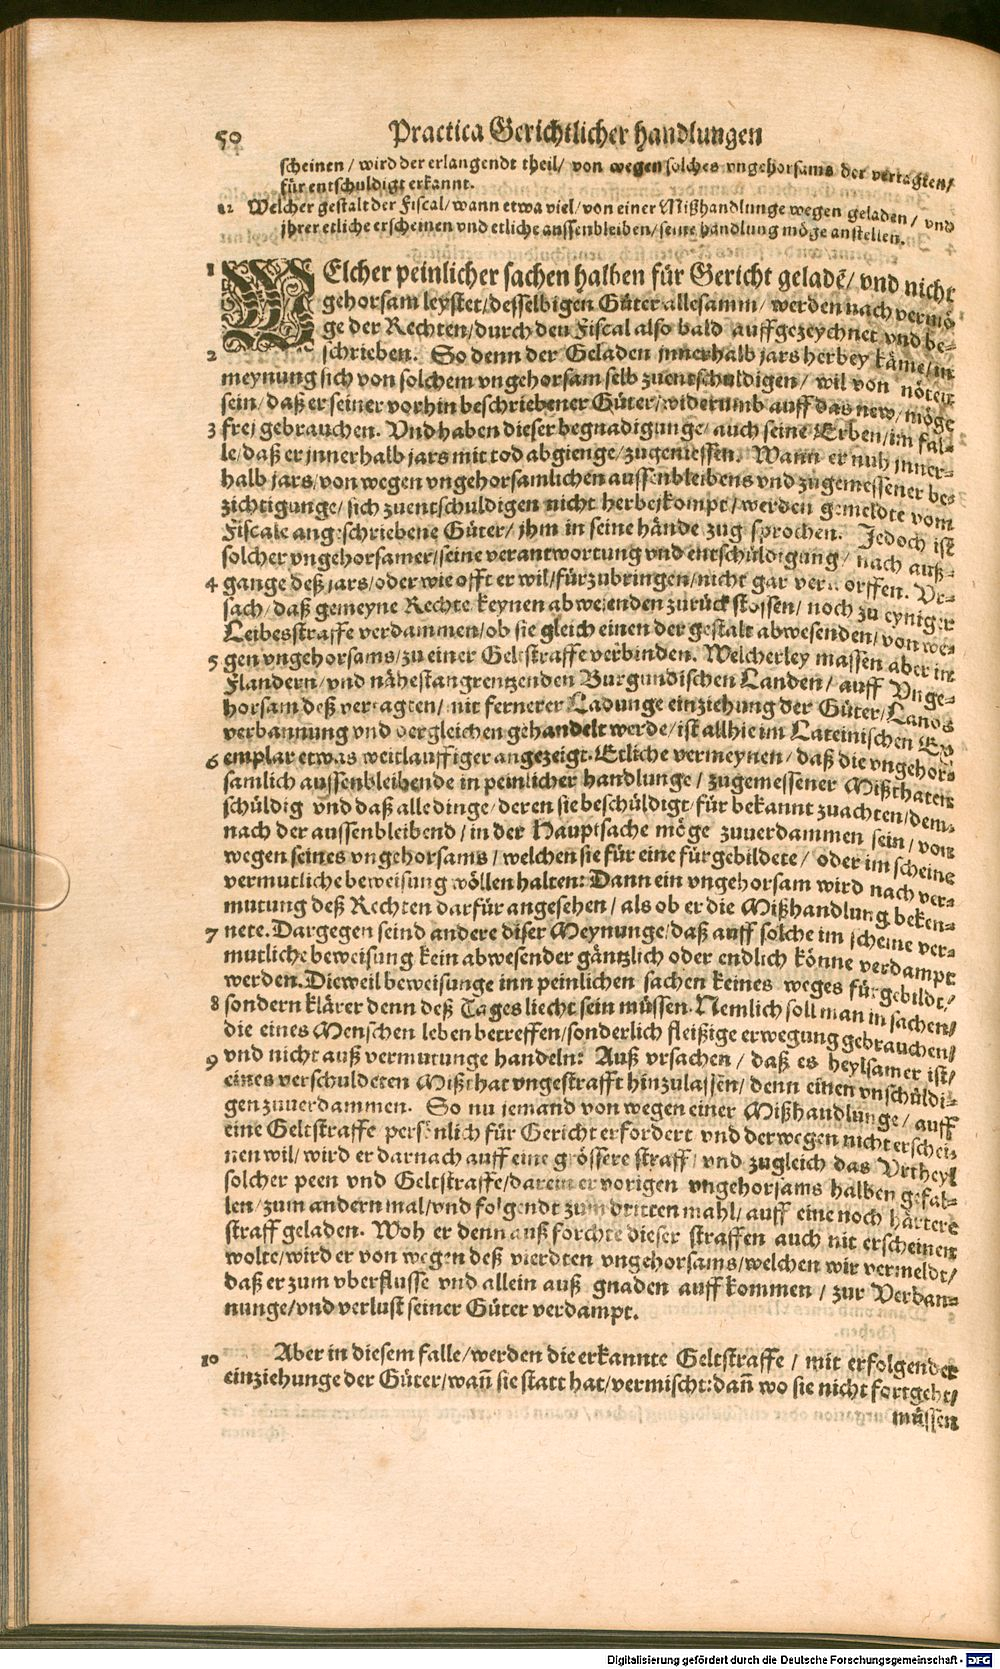 50
Practica Gerichtlicher handlungen
scheinen / wird der erlangendt theil / von wegen solches vngehorsams der vertagten /
für entschuldigt erkannt.
12 Welcher gestalt der Fiscal / wann etwa viel / von einer Mißhandlunge wegen geladen / vnd
jhrer etliche erscheinen vnd etliche aussenbleiben / seine handlung möge anstellen.
1 WElcher peinlicher sachen halben für Gericht geladē / vnd nicht
gehorsam leystet / desselbigen Güter allesamm / werden nach vermö=
ge der Rechten / durch den Fiscal also bald auffgezeychnet vnd be=
2 schrieben. So denn der Geladen innerhalb jars herbey käme / in
meynung sich von solchem vngehorsam selb zuentschuldigen / wil von nöten
sein / daß er seiner vorhin beschriebener Güter / widerumb auff das new / möge
3 frej gebrauchen. Vnd haben dieser begnadigunge / auch seine Erben / im fal=
le / daß er jnnerhalb jars mit tod abgienge / zugeniessen. Wann er nuh jnner=
halb jars / von wegen vngehorsamlichen aussenbleibens vnd zugemessener be=
zichtigunge / sich zuentschuldigen nicht herbejkompt / werden gemeldte vom
Fiscale angeschriebene Güter / jhm in seine hände zug sprochen. Jedoch ist
solcher vngehorsamer / seine verantwortung vnd entschüldigung / nach auß=
4 gange deß jars / oder wie offt er wil / fürzubringen / nicht gar verworffen. Vr=
sach / daß gemeyne Rechte keynen abwesenden zurück stossen / noch zu eyniger
Leibesstraffe verdammen / ob sie gleich einen der gestalt abwesenden / von we=
5 gen vngehorsams / zu einer Geltstraffe verbinden. Welcherley massen aber in
Flandern / vnd nähestangrentzenden Burgundischen Landen / auff Vnge=
horsam deß vertagten / mit fernerer Ladunge einziehung der Güter / Lands
verbannung vnd dergleichen gehandelt werde / ist allhie im Lateinischen Ex
6 emplar etwas weitlauffiger angezeigt. Etliche vermeynen / daß die vngehor=
samlich aussenbleibende in peinlicher handlunge / zugemessener Mißthaten
schüldig vnd daß alle dinge / deren sie beschüldigt / für bekannt zuachten / dem=
nach der aussenbleibend / in der Hauptsache möge zuuerdammen sein / von
wegen seines vngehorsams / welchen sie für eine fürgebildete / oder im scheine
vermutliche beweisung wöllen halten: Dann ein vngehorsam wird nach ver=
mutung deß Rechten darfür angesehen / als ob er die Mißhandlung beken=
7 nete. Dargegen seind andere diser Meynunge / daß auff solche im scheine ver=
mutliche beweisung kein abwesender gäntzlich oder endlich könne verdampt
werden. Dieweil beweisunge inn peinlichen sachen keines weges fürgebildt /
8 sondern klärer denn deß Tages liecht sein müssen. Nemlich soll man in sachen /
die eines Menschen leben betreffen / sonderlich fleißige erwegung gebrauchen /
9 vnd nicht auß vermutunge handeln: Auß vrsachen / daß es heylsamer ist /
eines verschuldeten Mißthat vngestrafft hinzulassen / denn einen vnschüldi=
gen zuuerdammen. So nu jemand von wegen einer Mißhandlunge / auff
eine Geltstraffe persönlich für Gericht erfordert vnd derwegen nicht erschei=
nen wil / wird er darnach auff eine grössere straff / vnd zugleich das Vrtheyl
solcher peen vnd Geltstraffe / darein er vorigen vngehorsams halben gefal=
len / zum andern mal / vnd folgendt zum dritten mahl / auff eine noch härtere
straff geladen. Woh er denn auß forchte dieser straffen auch nit erscheinen
wolte / wird er von wegen deß vierdten vngehorsams / welchen wir vermeldt /
daß er zum vberflusse vnd allein auß gnaden auffkommen / zur Verban=
nunge / vnd verlust seiner Güter verdampt.
10 Aber in diesem falle / werden die erkannte Geltstraffe / mit erfolgender
einziehunge der Güter / wañ sie statt hat / vermischt: dañ wo sie nicht fortgeht /
müssen
Digitalisierung gefördert durch die Deutsche Forschungsgemeinschaft - DFG